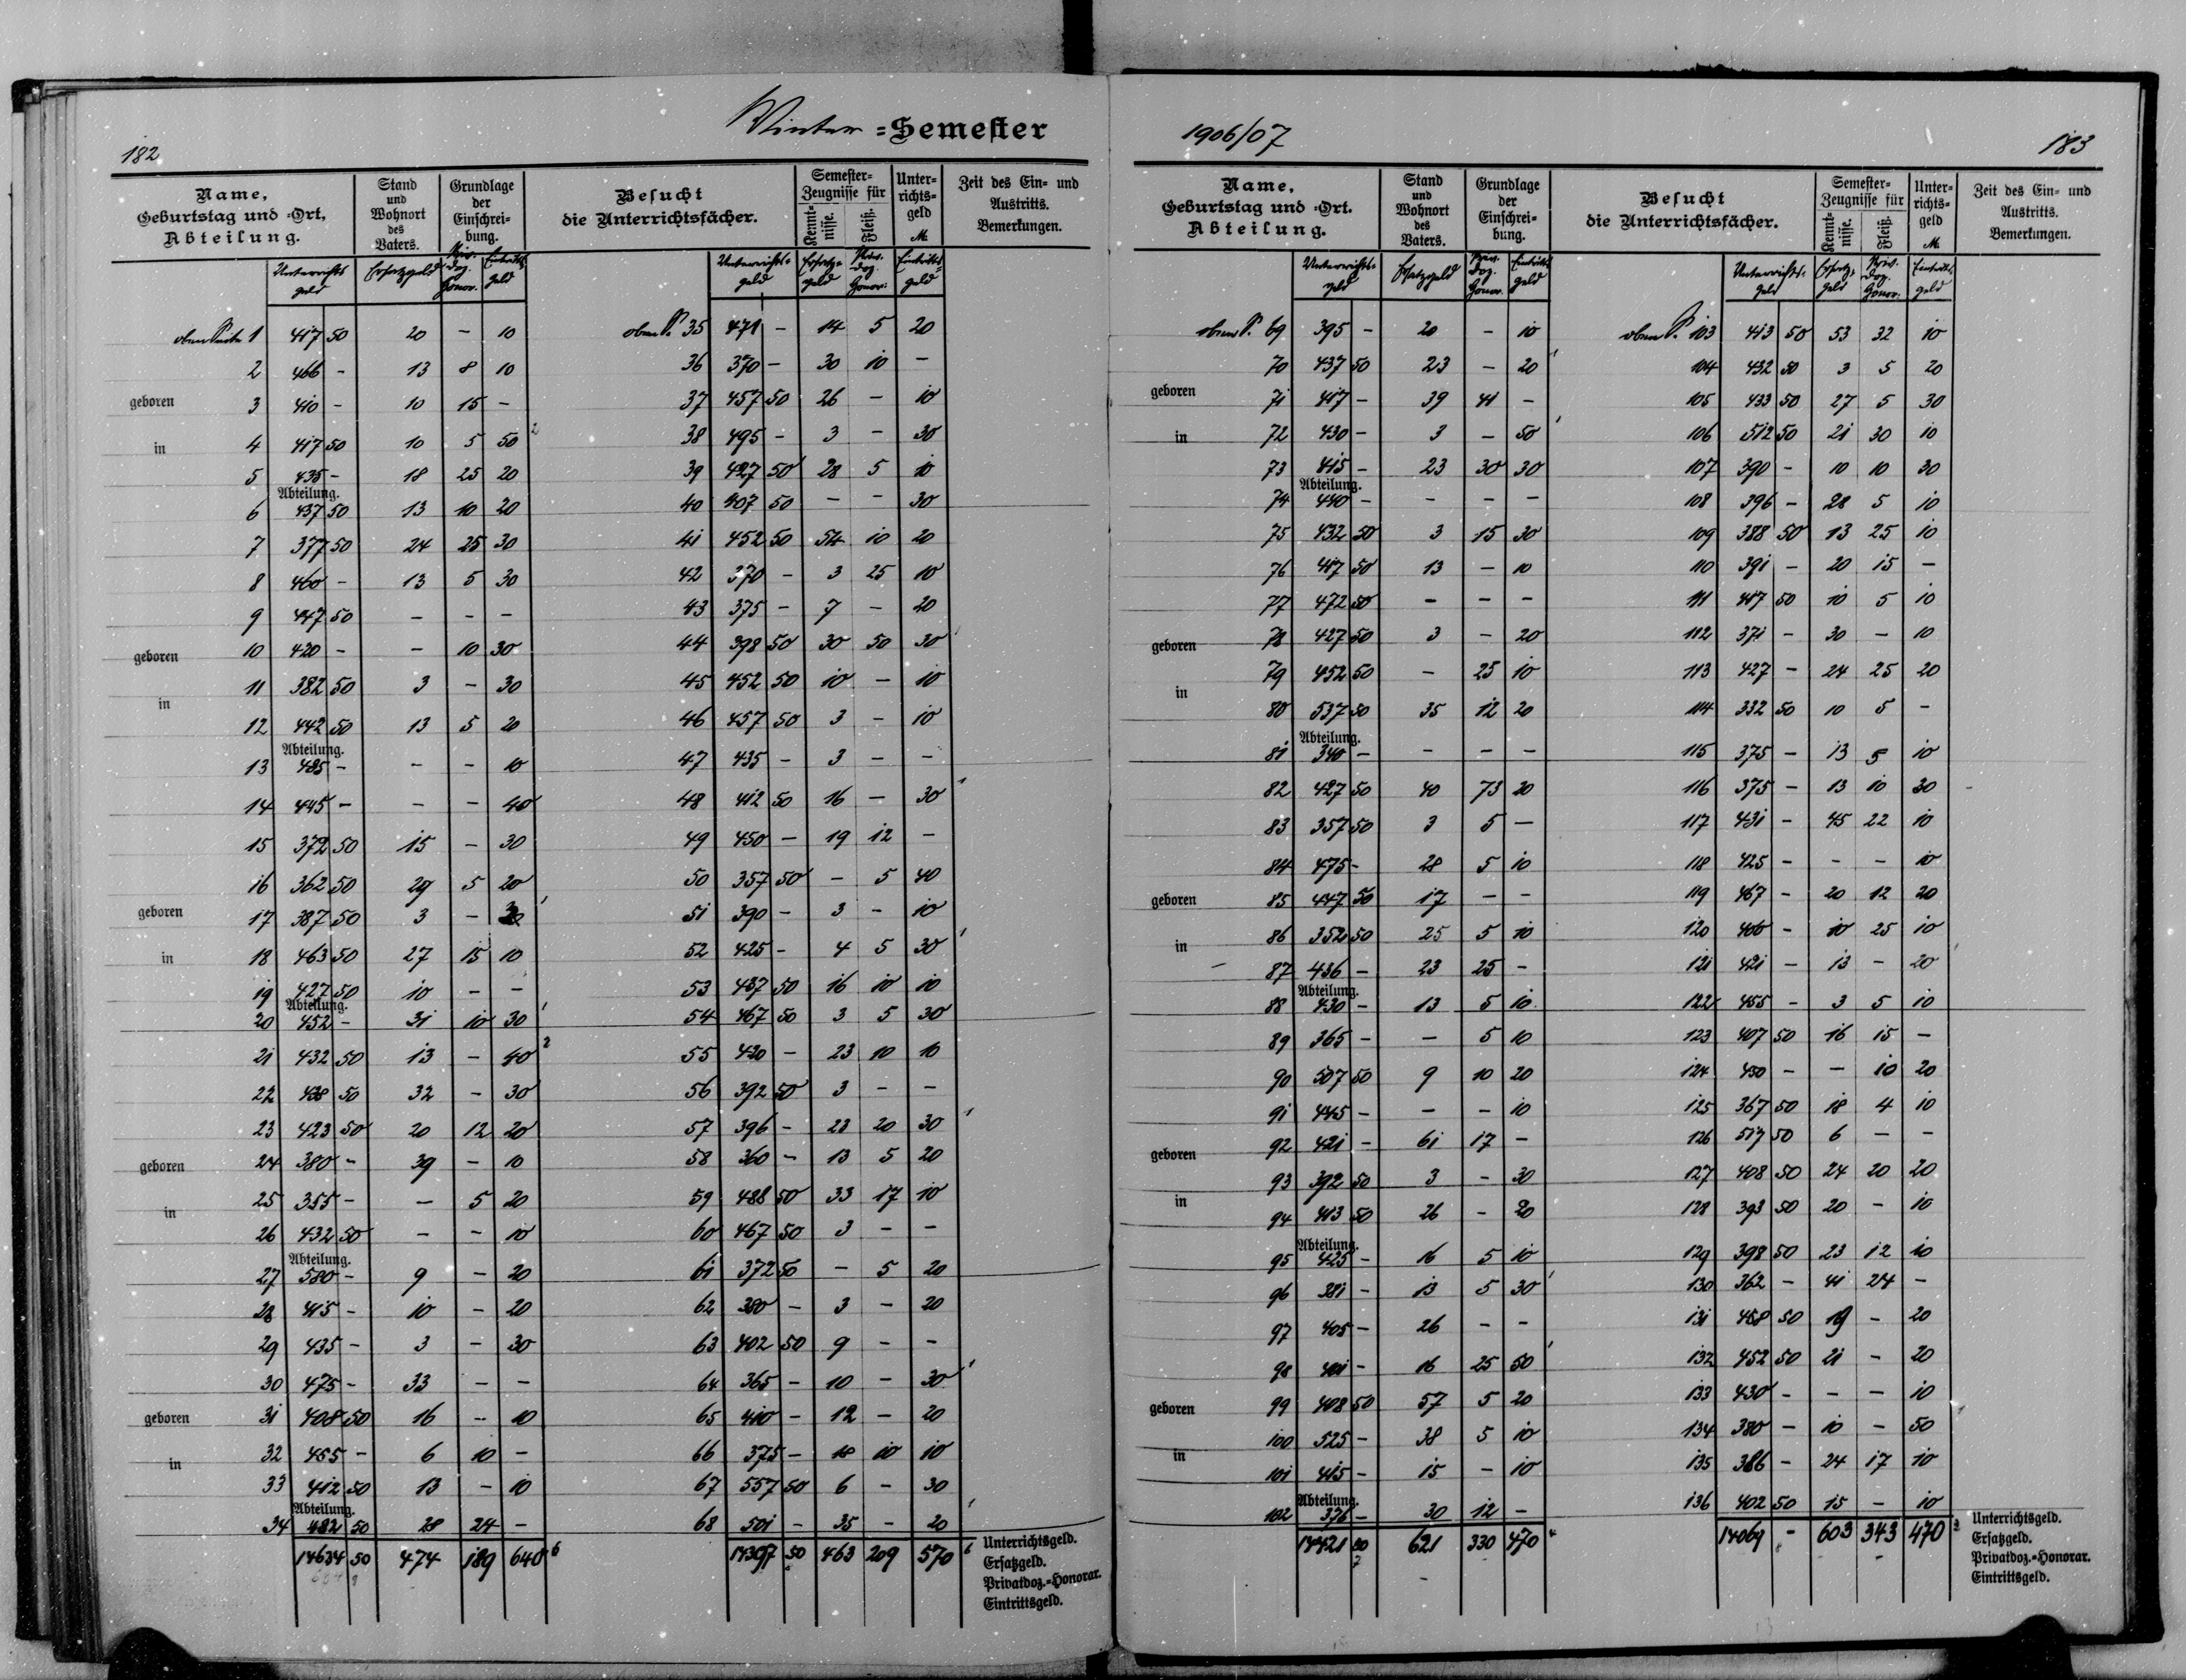 182
Winter =Semester
Name, Geburtstag und =Ort, Abteilung.
Stand und Wohnort des Vaters.
Grundlage der Einschrei- bung.
Besucht die Unterrichtsfächer.
Semester- Zeugnisse für
Kennt- nisse.
Fleiß.
Unter- richts- geld M.
Zeit des Ein- und Austritts. Bemerkungen.
Unterrichts geld
Ersatzgeld
Priv. Doz. Honor.
Eintritts geld
Unterrichts- geld
Ersatz- geld
Priv. Doz. Honor.
Eintritts geld
1 417 50 20 - 10
2 466 - 13 8 10
geboren
3 410 - 10 15 -
in
4 417 50 10 5 50 2
5 435 - 18 25 20
Abteilung.
6 437 50 13 10 20
7 377 50 24 25 30
8 460 - 13 5 30
9 447 50 - - -
geboren
10 420 - - 10 30
11 382 50 3 - 30
in
12 442 50 13 5 20
Abteilung.
13 485 - - - 10
14 445 - - - 40
15 372 50 15 - 30
16 362 50 29 5 20
geboren
17 387 50 3 -
in
18 463 50 27 15 10
19 427 50 10 - -
Abteilung.
20 452 - 31 10 30
21 432 50 13 - 40 2
22 438 50 32 - 30
23 423 50 20 12 20
geboren
24 380 - 39 - 10
25 355 - - 5 20
in
26 432 50 - - 10
Abteilung.
27 580 - 9 - 20
28 415 - 10 - 20
29 435 - 3 - 30
30 475 - 33 - -
geboren
31 408 50 16 - 10
32 455 - 6 10 -
in
33 412 50 13 - 10
Abteilung.
34 482 50 28 24 -
14634 50 474 189 640 6
35 471 - 14 5 20
36 370 - 30 10 -
37 457 50 26 - 10
38 495 - 3 - 30
39 427 50 28 5 10
40 407 50 - - 30
41 452 50 54 10 20
42 370 - 3 25 10
43 375 - 7 - 20
44 398 50 30 50 30
45 452 50 10 - 10
46 457 50 3 - 10
47 435 - 3 - -
48 412 50 16 - 30
49 450 - 19 12 -
50 357 50 - 5 40
51 390 - 3 - 10
52 425 - 4 5 30
53 437 50 16 10 10
54 467 50 3 5 30
55 420 - 23 10 10
56 392 50 3 - -
57 396 - 23 20 30
58 360 - 13 5 20
59 488 50 33 17 10
60 467 50 3 - -
61 372 50 - 5 20
62 380 - 3 - 20
63 402 50 9 - -
64 365 - 10 - 30
65 410 - 12 - 20
66 375 - 18 10 10
67 557 50 6 - 30
68 501 - 35 - 20
14397 50 463 209 570 6
Unterrichtsgeld.
Ersatzgeld.
Privatdoz.=Honorar.
Eintrittsgeld.
1906/07
183
Name, Geburtstag und =Ort. Abteilung.
Stand und Wohnort des Vaters.
Grundlage der Einschrei- bung.
Besucht die Unterrichtsfächer.
Semester- Zeugnisse für
Kennt- nisse.
Fleiß.
Unter- richts- geld M.
Zeit des Ein- und Austritts. Bemerkungen.
Unterrichts- geld
Ersatzgeld
Priv. Doz. Honor.
Eintritts geld
Unterrichts- geld
Ersatz- geld
Priv. Doz. Honor.
Eintritts geld
69 395 - 20 - 10
70 437 50 23 - 20
geboren
71 417 - 39 41 -
in
72 430 - 3 - 50
73 415 - 23 30 30
Abteilung.
74 440 - - - -
75 432 50 3 15 30
76 417 50 13 - 10
77 472 50 - - -
geboren
78 427 50 3 - 20
79 452 50 - 25 10
in
80 537 50 35 12 20
Abteilung.
81 340 - - - -
82 427 50 40 73 20
83 357 50 3 5 -
84 475 - 28 5 10
geboren
85 447 50 17 - -
in
86 352 50 25 5 10
87 436 - 23 25 -
Abteilung.
88 430 - 13 5 10
89 365 - - 5 10
90 507 50 9 10 20
91 445 - - - 10
geboren
92 421 - 61 17 -
93 392 50 3 - 30
in
94 413 50 26 - 20
Abteilung.
95 425 - 16 5 10
96 381 - 13 5 30
97 405 - 26 - -
98 401 - 16 25 50
geboren
99 408 50 57 5 20
100 525 - 38 5 10
in
101 415 - 15 - 10
Abteilung.
102 376 - 30 12 -
14421 50 621 330 470
103 413 50 53 32 10
104 432 50 3 5 20
105 433 50 27 5 30
106 512 50 21 30 10
107 390 - 10 10 30
108 396 - 28 5 10
109 388 50 13 25 10
110 391 - 20 15 -
111 417 50 10 5 10
112 371 - 30 - 10
113 427 - 24 25 20
114 332 50 10 5 -
115 375 - 13 5 10
116 375 - 13 10 30
117 431 - 45 22 10
118 425 - - - 10
119 467 - 20 12 20
120 400 - 10 25 10
121 421 - 13 - 20
122 455 - 3 5 10
123 407 50 16 15 -
124 450 - - 10 20
125 367 50 18 4 10
126 517 50 6 - -
127 408 50 24 20 20
128 393 50 20 - 10
129 398 50 23 12 10
130 362 - 41 24 -
131 458 50 19 - 20
132 452 50 21 - 20
133 430 - - - 10
134 380 - 10 - 50
135 386 - 24 17 10
136 402 50 15 - 10
14069 - 603 343 470
Unterrichtsgeld.
Ersatzgeld.
Privatdoz.=Honorar.
Eintrittsgeld.